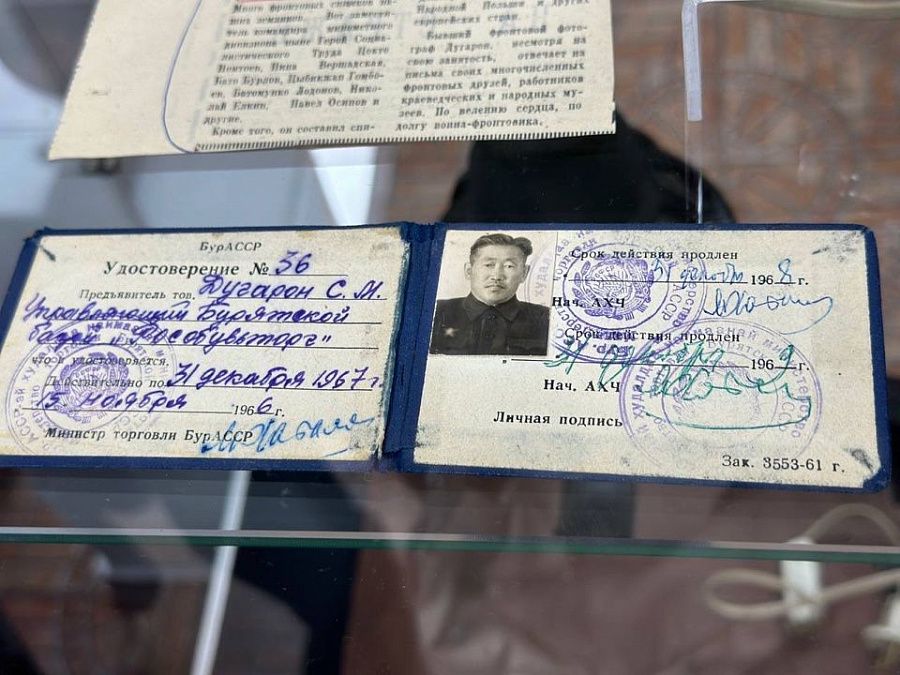 много фронтовых снимков на-
ших земляков. Это замести-
тель командира минометного
дивизиона ныне Герой Социа-
листического Труда Цокто
Номтоев, Нина Вершадская,
Бато Бурлов, Цыбикжап Гомбо-
ев, Батомунко Лодонов, Нико-
лай Елкин, Павел Осипов и
другие.
Кроме того, он составил спи-
Народной Польши и других
европейских стран.
Бывший фронтовой фото-
граф Дугарон, несмотря на
свою занятость, отвечает на
письма своих многочисленных
фронтовых друзей, работников
краеведческих и народных му-
зеев. По велению сердца, по
долгу воина-фронтовика.
БурАССР
Удостоверение № 36
Предъявитель тов. Дугарон С. М.
Управляющий Бурятской
базой „Рособувьторг"
что и удостоверяется.
Действительно по 31 декабря 1967 г.
15 ноября 1966 г.
Министр торговли БурАССР
Срок действия продлен
31 декабря 1968 г.
Нач. АХЧ
Срок действия продлен
31 декабря 1969 г.
Нач. АХЧ
Личная подпись
Зак. 3553-61 г.